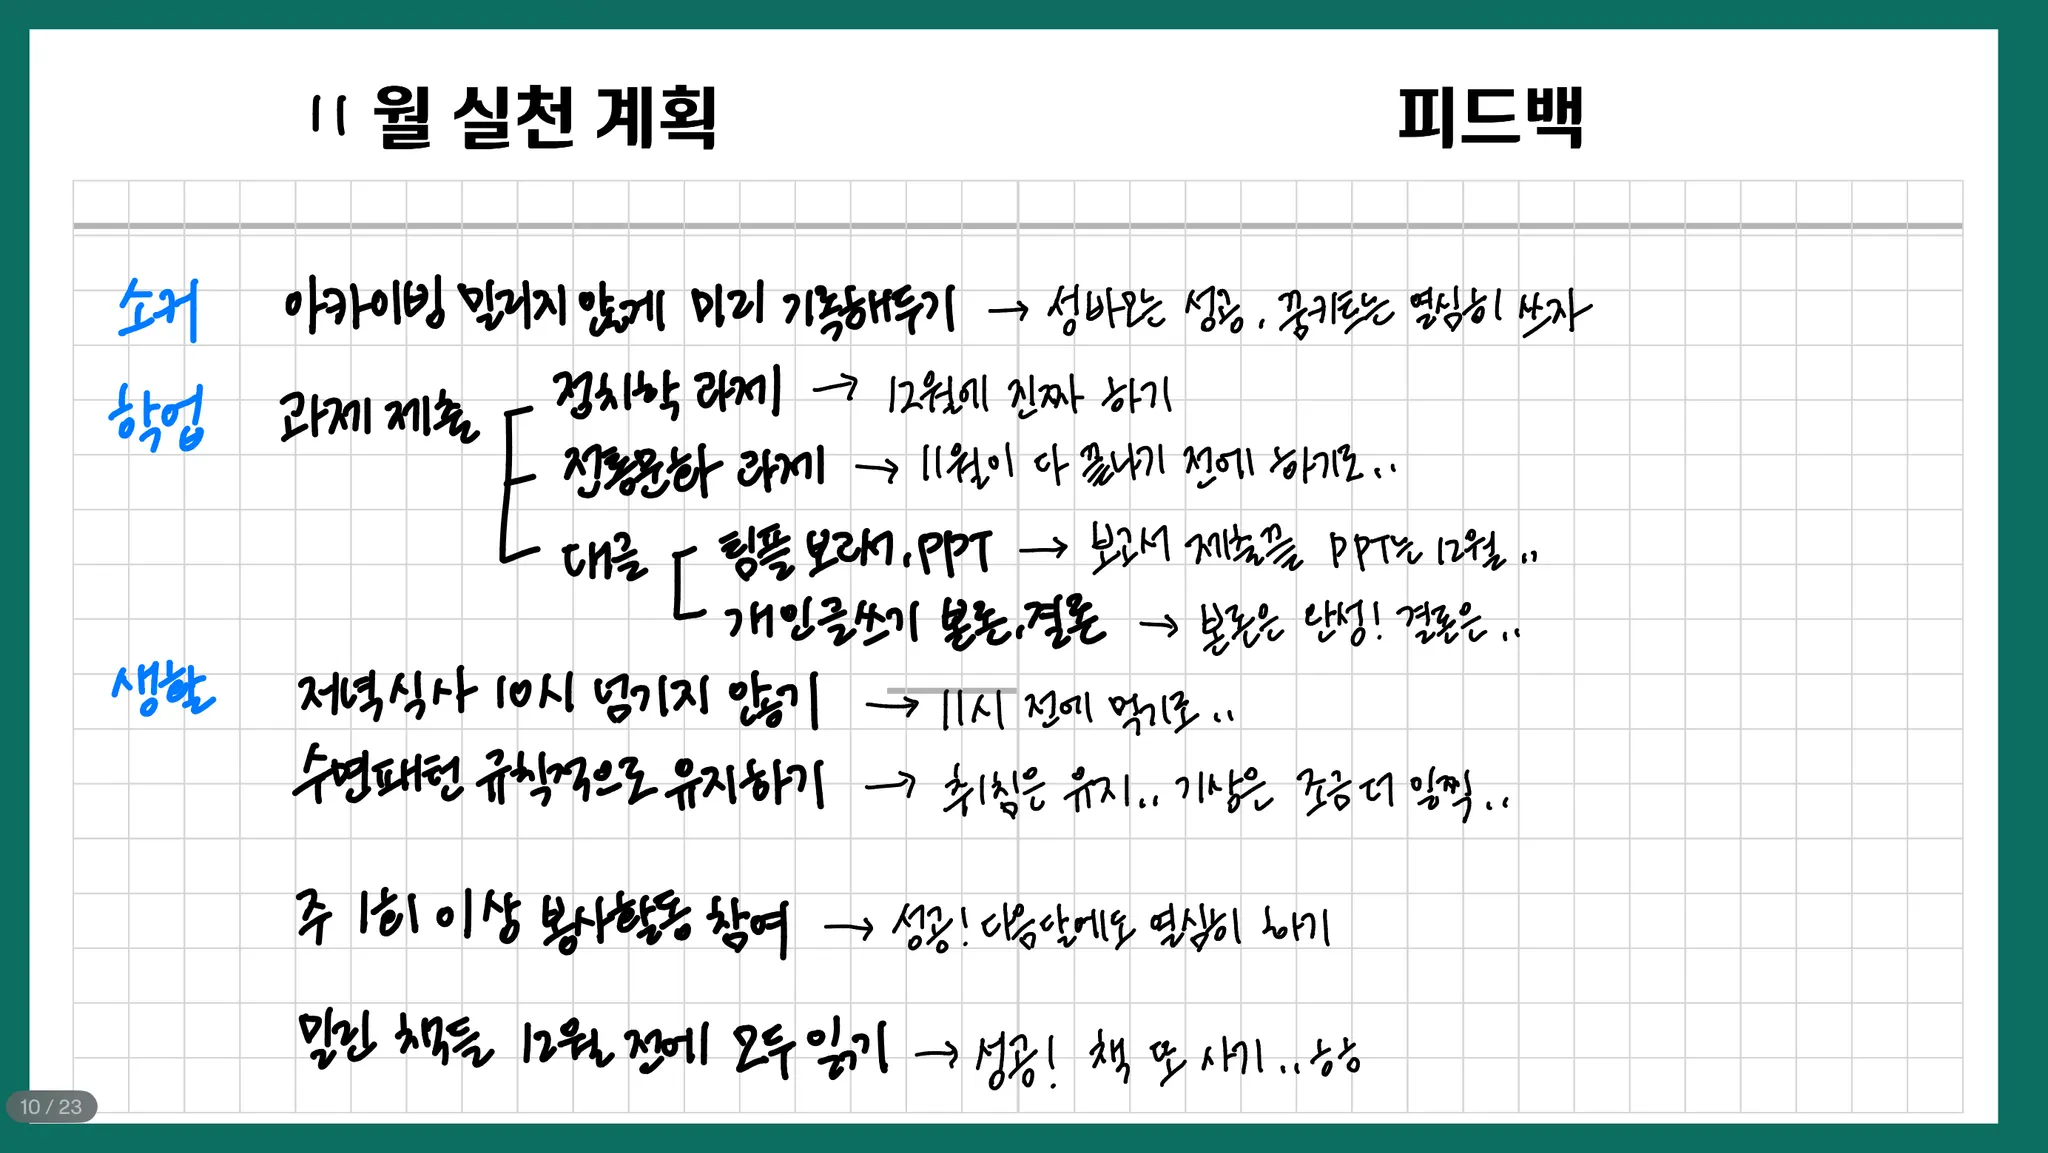 11월 실천 계획
피드백
소커 아카이빙 밀리지 않게 미리 기록해두기 → 성바오는 성공, 꿈키트는 열심히 쓰자
학업 과제 제출 정치학 과제 → 12월에 진짜 하기
전통문화 과제 → 11월이 다 끝나기 전에 하기로..
대글 팀플 보고서, PPT → 보고서 제출끝 PPT는 12월..
개인글쓰기 본론, 결론 → 본론은 완성! 결론은..
생활 저녁식사 10시 넘기지 않기 → 11시 전에 먹기로..
수면패턴 규칙적으로 유지하기 → 취침은 유지.. 기상은 조금 더 일찍..
주 1회 이상 봉사활동 참여 → 성공! 다음달에도 열심히 하기
밀린 책들 12월 전에 모두 읽기 → 성공! 책 또 사기..ㅎㅎ
10 / 23